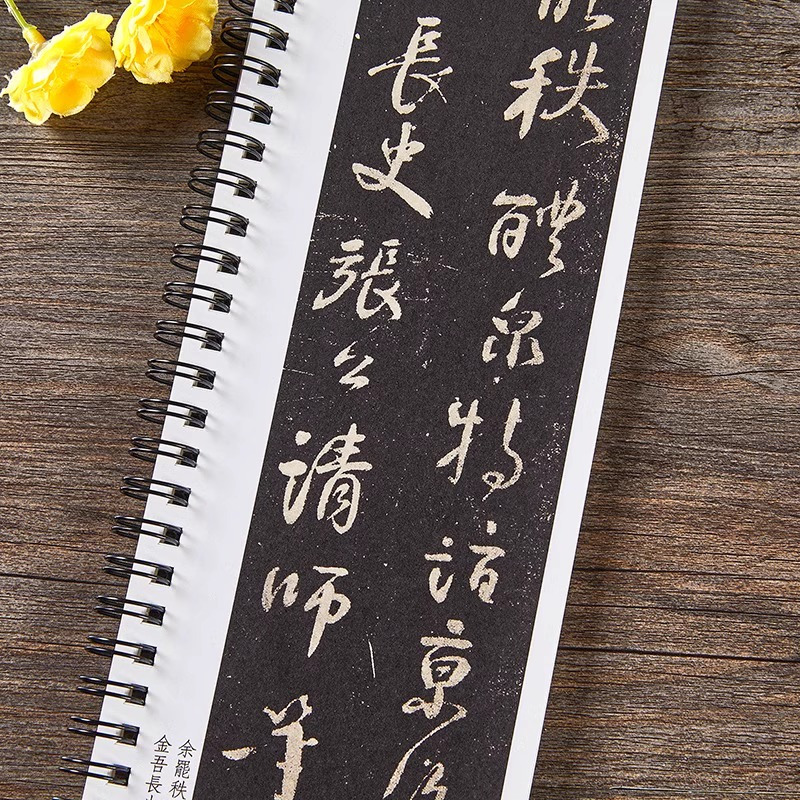 秩醴泉特詣京
長史張公請師筆
余罷秩
金吾長